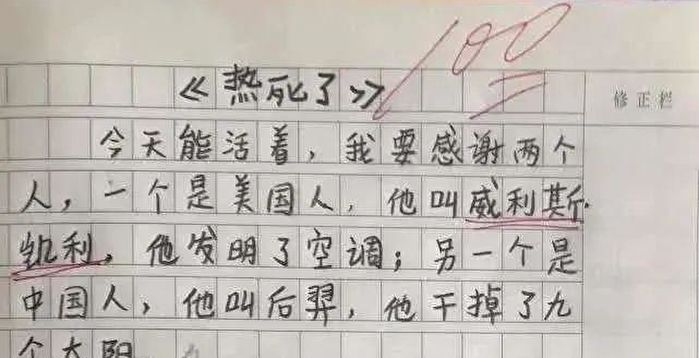 100
《热死了》
修正栏
今天能活着，我要感谢两个
人，一个是美国人，他叫威利斯·
凯利，他发明了空调；另一个是
中国人，他叫后羿，他干掉了九
个太阳